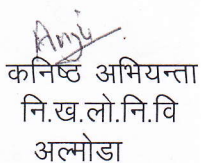 Anju
कनिष्ठ अभियन्ता
नि.ख.लो.नि.वि
अल्मोडा